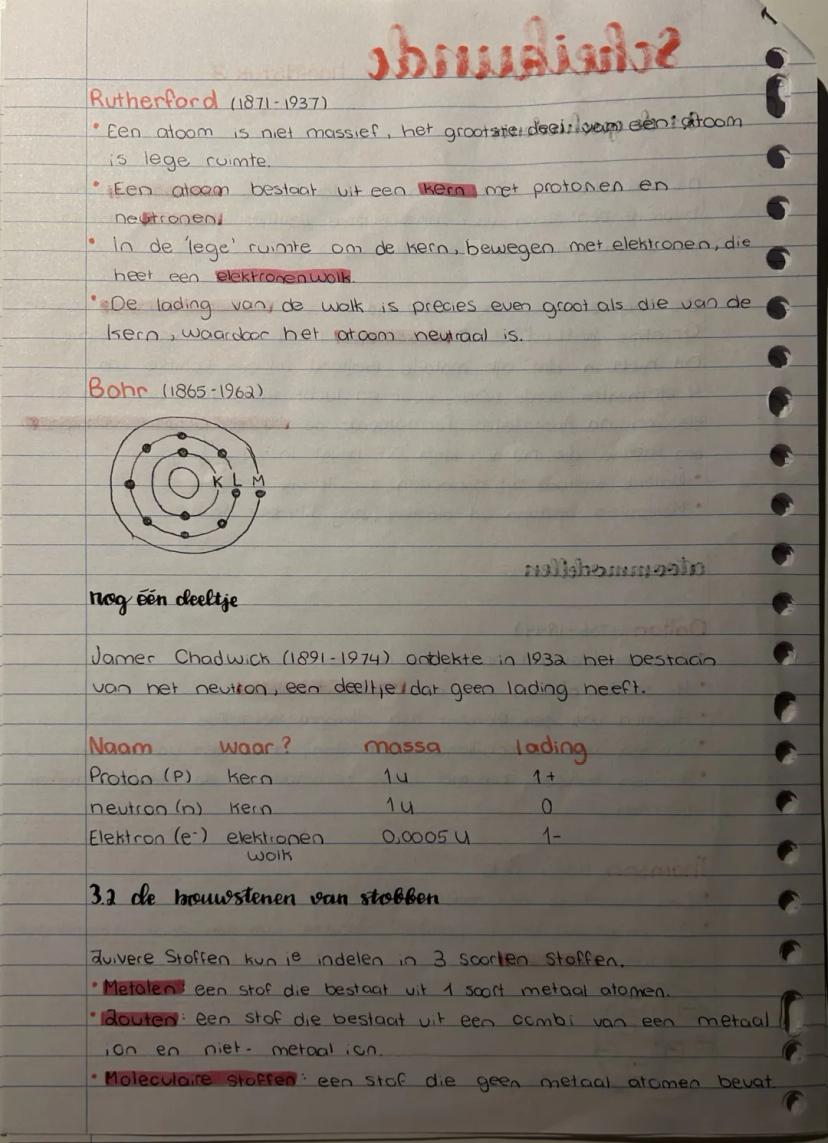 Scheikunde
Rutherford (1871-1937)
• Een atoom is niet massief, het grootste deel van een atoom
is lege ruimte.
• Een atoom bestaat uit een kern met protonen en
neutronen.
• in de 'lege' ruimte om de kern, bewegen met elektronen, die
heet een elektronenwolk.
• De lading van de wolk is precies even groot als die van de
kern, waardoor het atoom neutraal is.
Bohr (1865-1962)
K L M
atoommodellen
nog één deeltje
Jamer Chadwick (1891-1974) ontdekte in 1932 het bestaan
van het neutron, een deeltje dat geen lading heeft.
Naam waar? massa lading
Proton (P) kern 1u 1+
neutron (n) kern 1u 0
Elektron (e-) elektronen 0,0005 u 1-
wolk
3.2 de bouwstenen van stoffen
Zuivere Stoffen kun je indelen in 3 soorten stoffen.
• Metalen: een stof die bestaat uit 1 soort metaal atomen.
• Zouten: een stof die bestaat uit een combi van een metaal
ion en niet-metaal ion.
• Moleculaire stoffen: een stof die geen metaal atomen bevat.